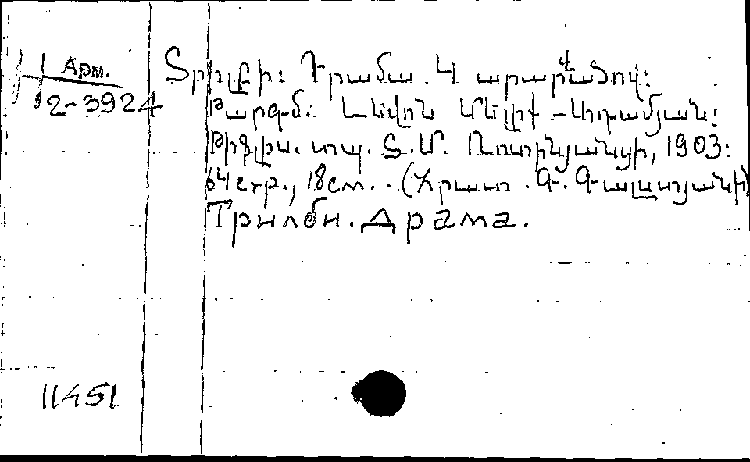 Арм.
2-3924
Տրիլբի: Դրամա. 4 արարվածով:
Թարգմ: Լևոն Մելիք-Ադամյան:
Թիֆլիս. տպ. Տ.Մ. Ռոտինյանցի, 1903:
64 стр., 18 см. (Հրատ. Գ. Գալստյանի)
Трилби. Драма.
11451